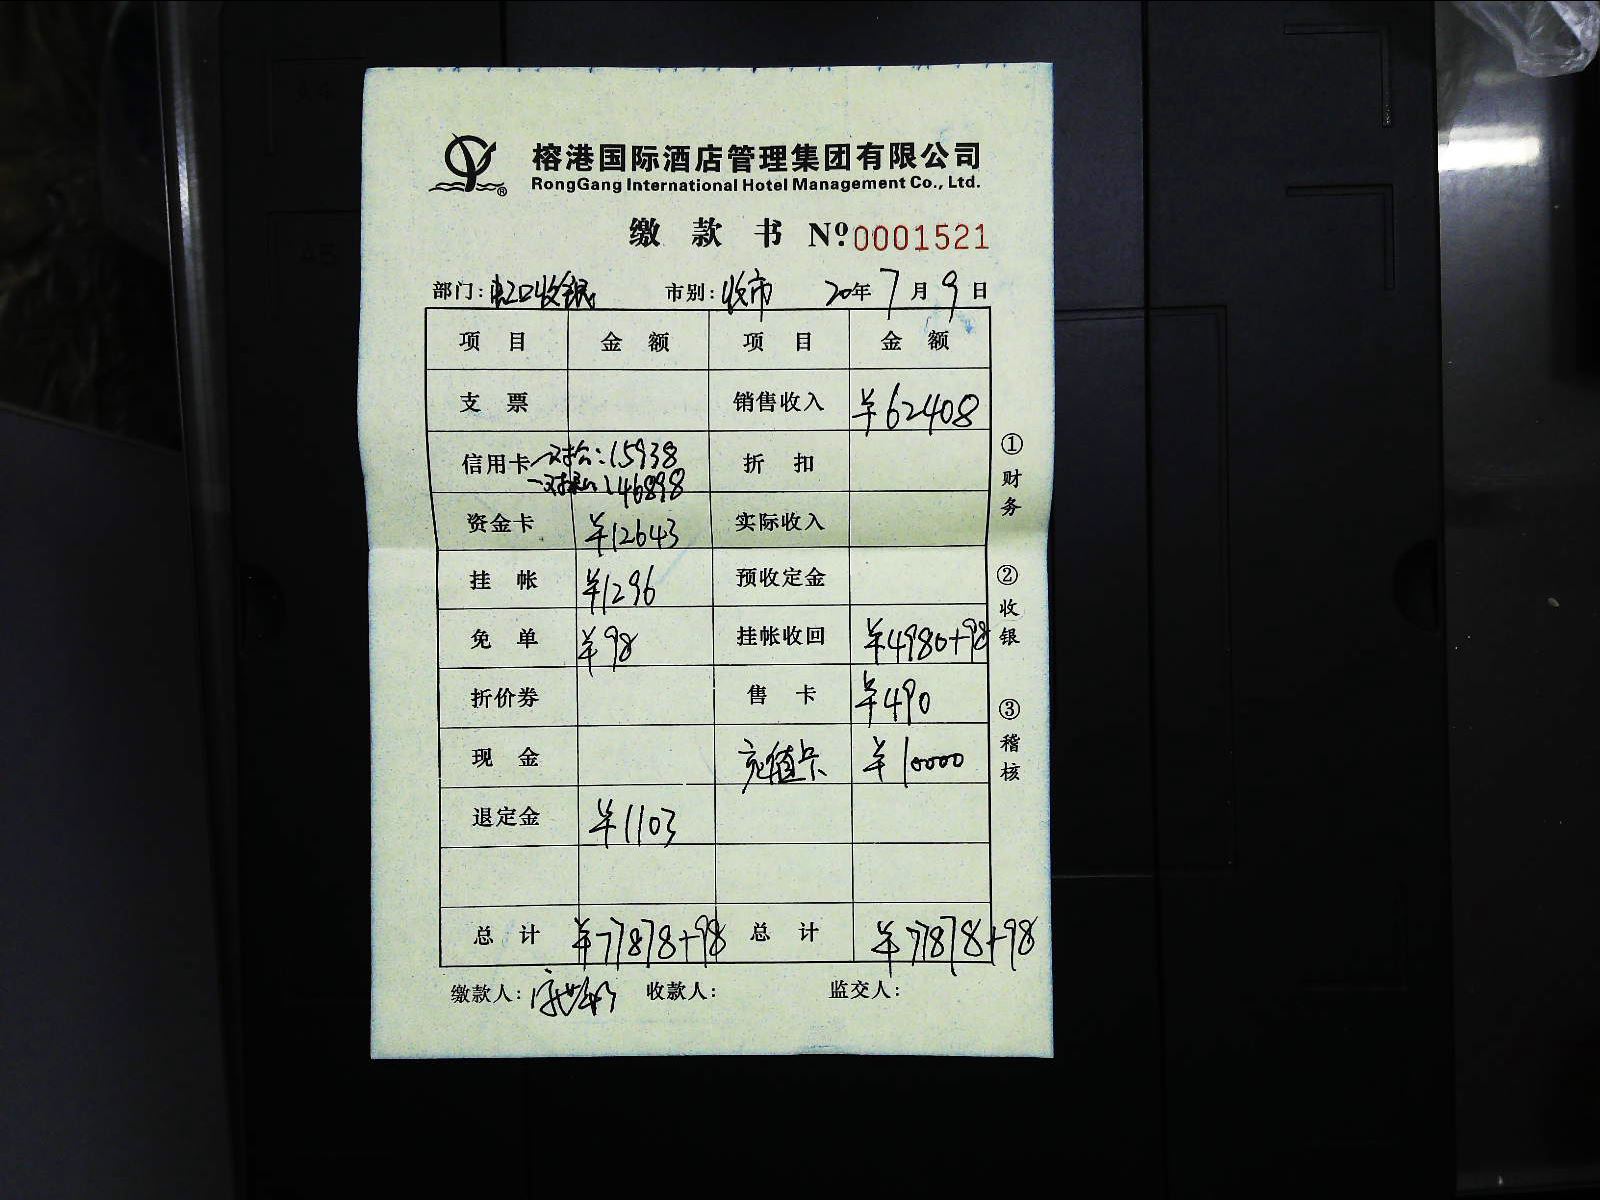 榕港国际酒店管理集团有限公司
RongGang International Hotel Management Co., Ltd.
缴款书 Nº:0001521
部门:虹口收银 市别:收市 20年7月9日
项目 金额 项目 金额
支票 销售收入 ¥62408
信用卡 一对公:15938 折扣
一对私:46898
资金卡 ¥12643 实际收入
挂帐 ¥1296 预收定金
免单 ¥98 挂帐收回 ¥4980+98
折价券 售卡 ¥490
现金 充值卡 ¥10000
退定金 ¥1103
总计 ¥77878+98 总计 ¥77878+98
缴款人: 收款人: 监交人:
①财务 ②收银 ③稽核